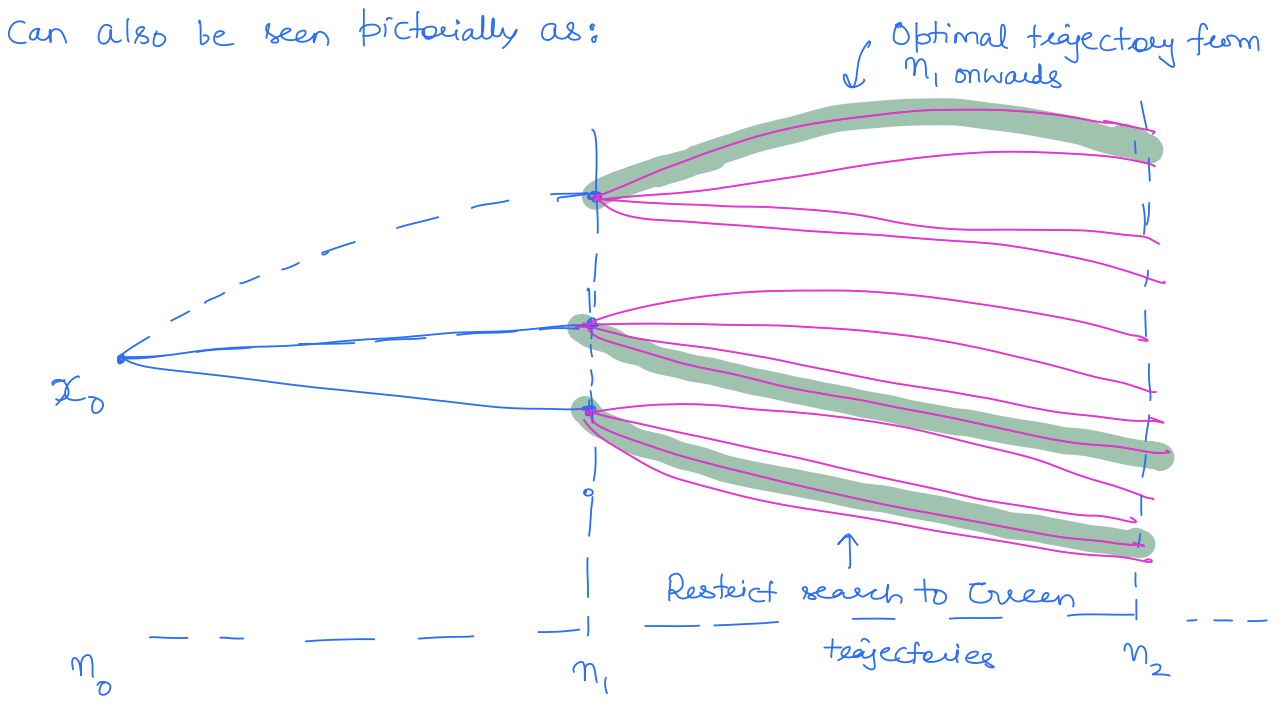 Can also be seen pictorially as:
Optimal trajectory from
n₁ onwards
x₀
Restrict search to Green
trajectories
n₀
n₁
n₂